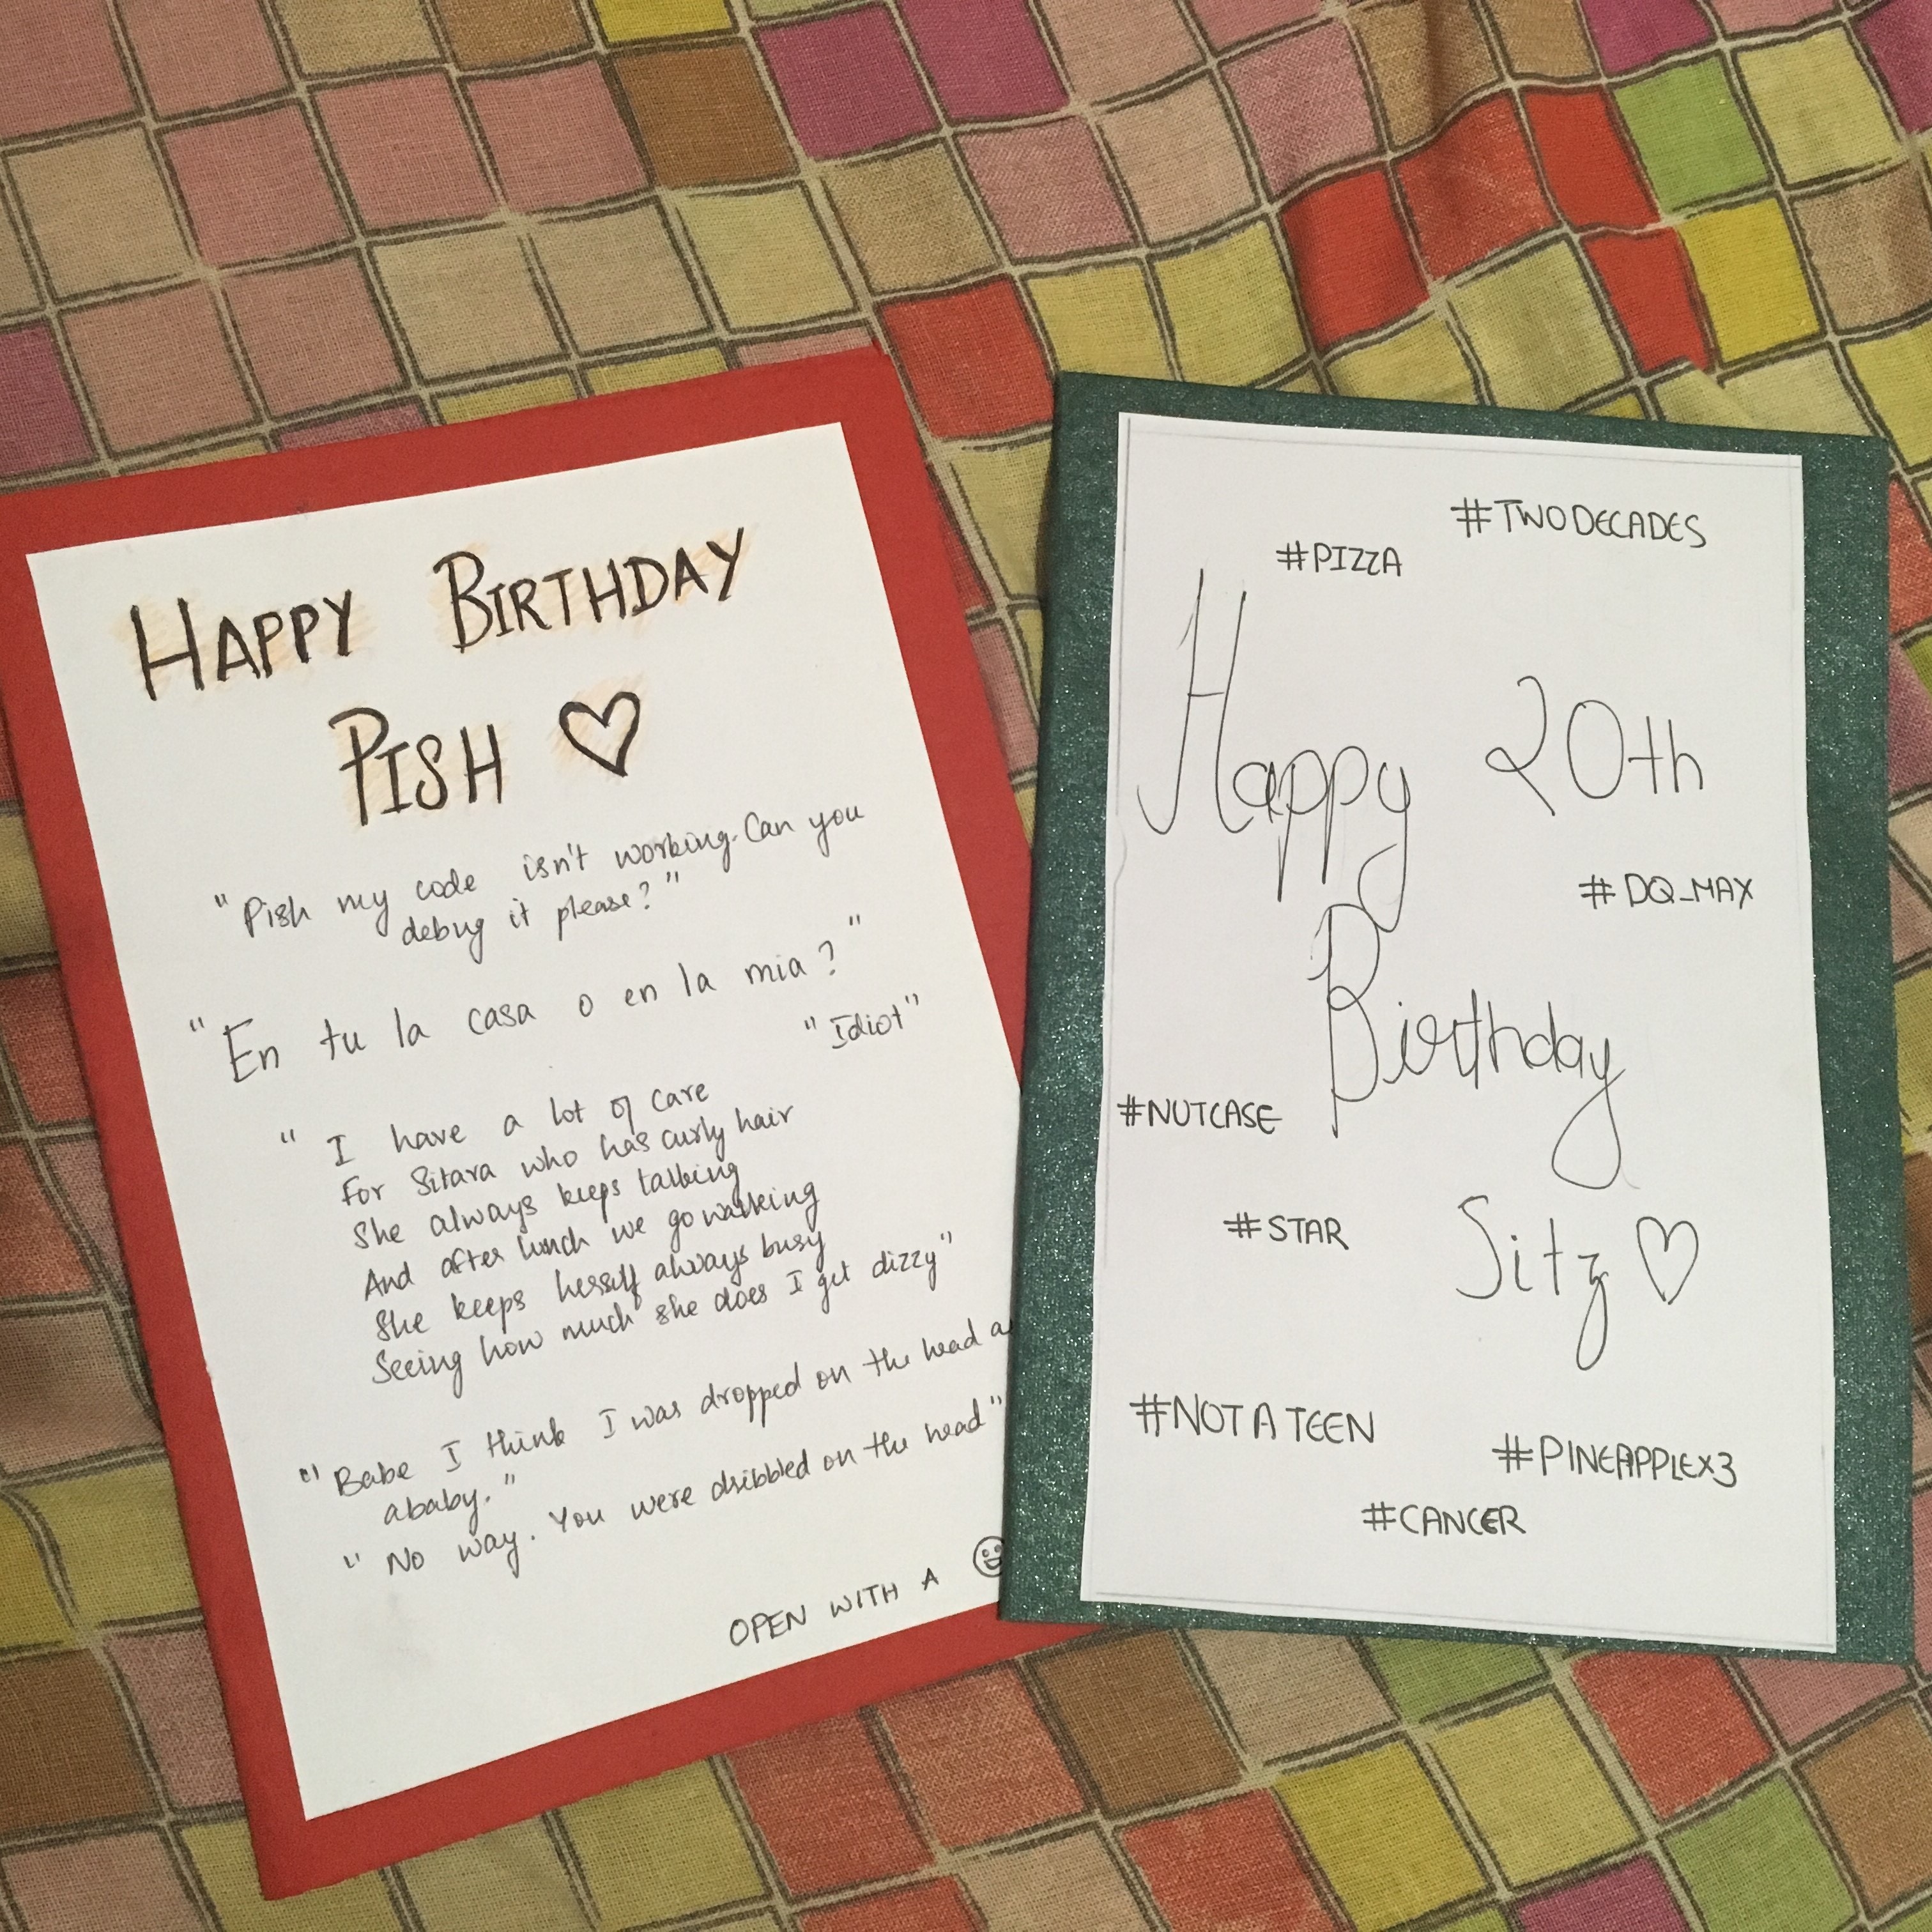 HAPPY BIRTHDAY
PISH ♡
"Pish my code isn't working. Can you
debug it please?"
"En tu la casa o en la mia?"
"Idiot"
"I have a lot of care
For Sitara who has curly hair
She always keeps talking
And after lunch we go walking
She keeps herself always busy
Seeing how much she does I get dizzy"
"Babe I think I was dropped on the head
ababy."
"No way. You were dribbled on the head"
OPEN WITH A ☺
#TWODECADES
#PIZZA
Happy 20th
#DQ_MAX
Birthday
#NUTCASE
#STAR
Sitz ♡
#NOTATEEN
#PINEAPPLEX3
#CANCER